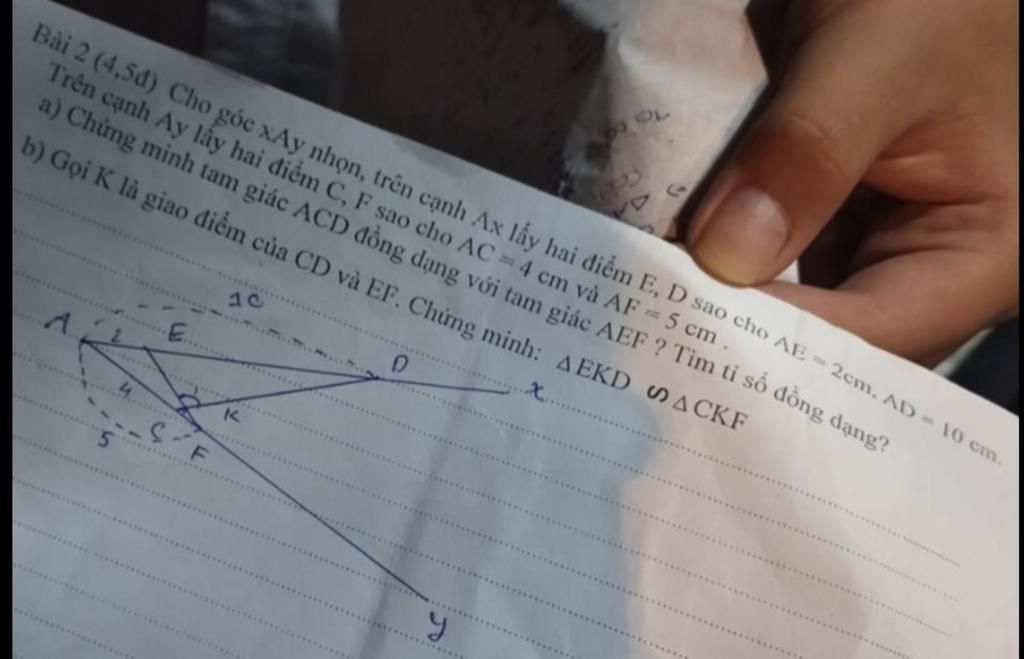 Bài 2 (4,5đ) Cho góc xAy nhọn, trên cạnh Ax lấy hai điểm E, D sao cho AE = 2cm, AD = 10 cm.
Trên cạnh Ay lấy hai điểm C, F sao cho AC = 4 cm và AF = 5 cm .
a) Chứng minh tam giác ACD đồng dạng với tam giác AEF ? Tìm tỉ số đồng dạng?
b) Gọi K là giao điểm của CD và EF. Chứng minh: ΔEKD ∽ ΔCKF
10
A 2 E D x
4 K
5 C F
y